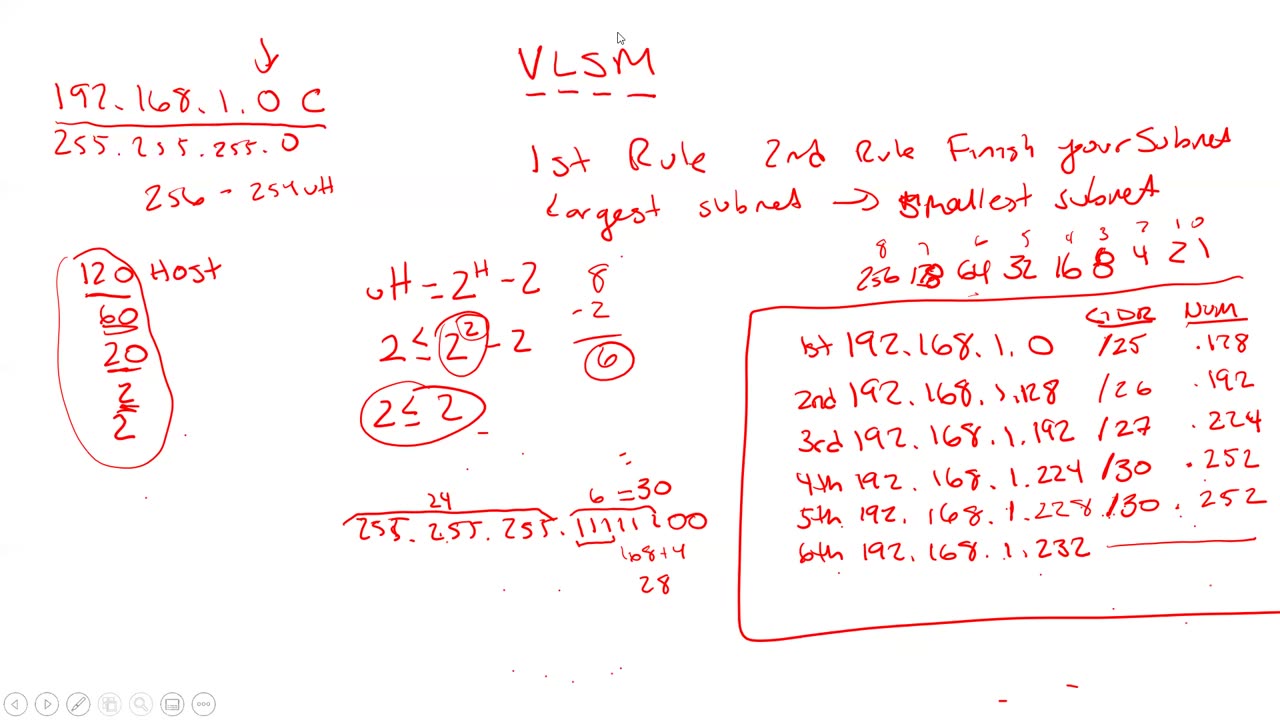 VLSM
192.168.1.0 C
255.255.255.0
256 - 254 uH
1st Rule 2nd Rule Finish your Subnet
Largest subnet → smallest subnet
8 7 6 5 4 3 2 1 0
256 128 64 32 16 8 4 2 1
120 Host
60
20
2
2
uH = 2^H - 2
2 ≤ 2^2 - 2
2 ≤ 2
8
-2
6
24 6 = 30
255.255.255.11111100
168+4
28
CIDR NUM
1st 192.168.1.0 /25 .128
2nd 192.168.1.128 /26 .192
3rd 192.168.1.192 /27 .224
4th 192.168.1.224 /30 .252
5th 192.168.1.228 /30 .252
6th 192.168.1.232